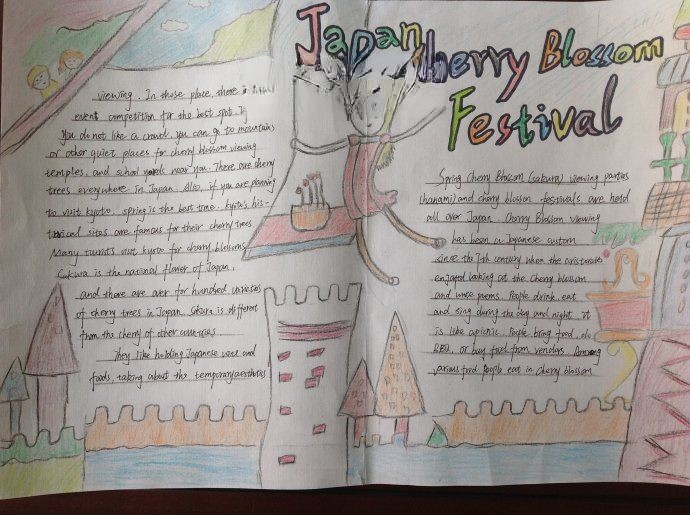 Japan Cherry Blossom
Festival
viewing. In those place, there is
event competition for the best spot. If
You do not like a crowd, you can go to mountains
or other quiet places for cherry blossom viewing
temples, and school yards near you. There are cherry
trees everywhere in Japan. Also, if you are planning
to visit kyoto. spring is the best time. kyoto's his-
torical sites are famous for their cherry trees
Many tourists visit kyoto for cherry blossoms
Sakura is the national flower of Japan.
and there are over for hundred varieties
of cherry trees in Japan. Sakura is different
from the cherry of other countries
They like holding Japanese and
foods, taking about the temporary aesthetics
Spring Cherry Blossom (sakura) viewing parties
(hanami) and cherry blossom festivals are held
all over Japan. Cherry Blossom viewing
has been a Japanese custom
since the 7th century when the aristocrats
enjoyed looking at the Cherry blossom
and wrote poems. People drink, eat
and sing during the day and night. it
is like a picnic. People bring food, do
BBQ, or buy food from vendors. Among
various food people eat in cherry blossom